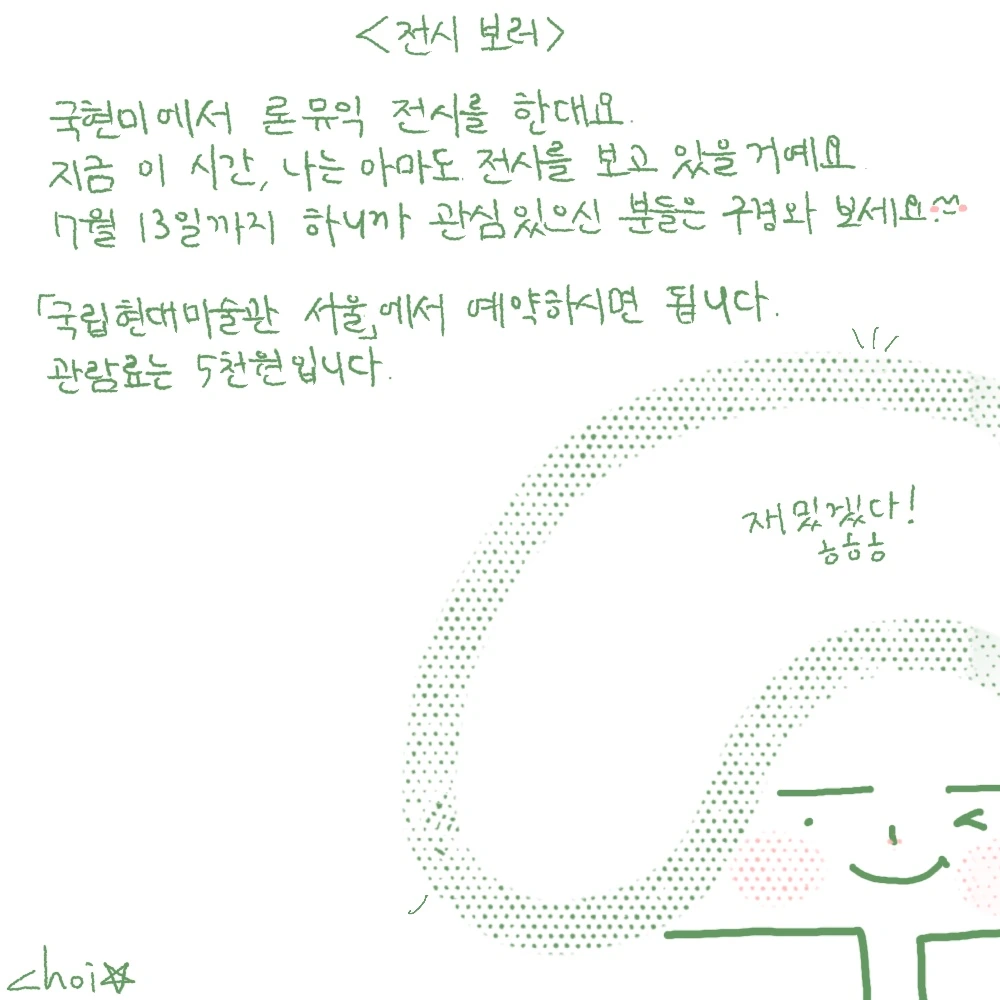 <전시 보러>
국현미에서 론뮤익 전시를 한대요.
지금 이 시간, 나는 아마도 전사를 보고 있을거예요
17월 13일까지 하니까 관심있으신 분들은 구경와 보세요^^
「국립현대미술관 서울」에서 예약하시면 됩니다.
관람료는 5천원입니다.
재밌겠다!
ㅎㅎㅎ
choi☆